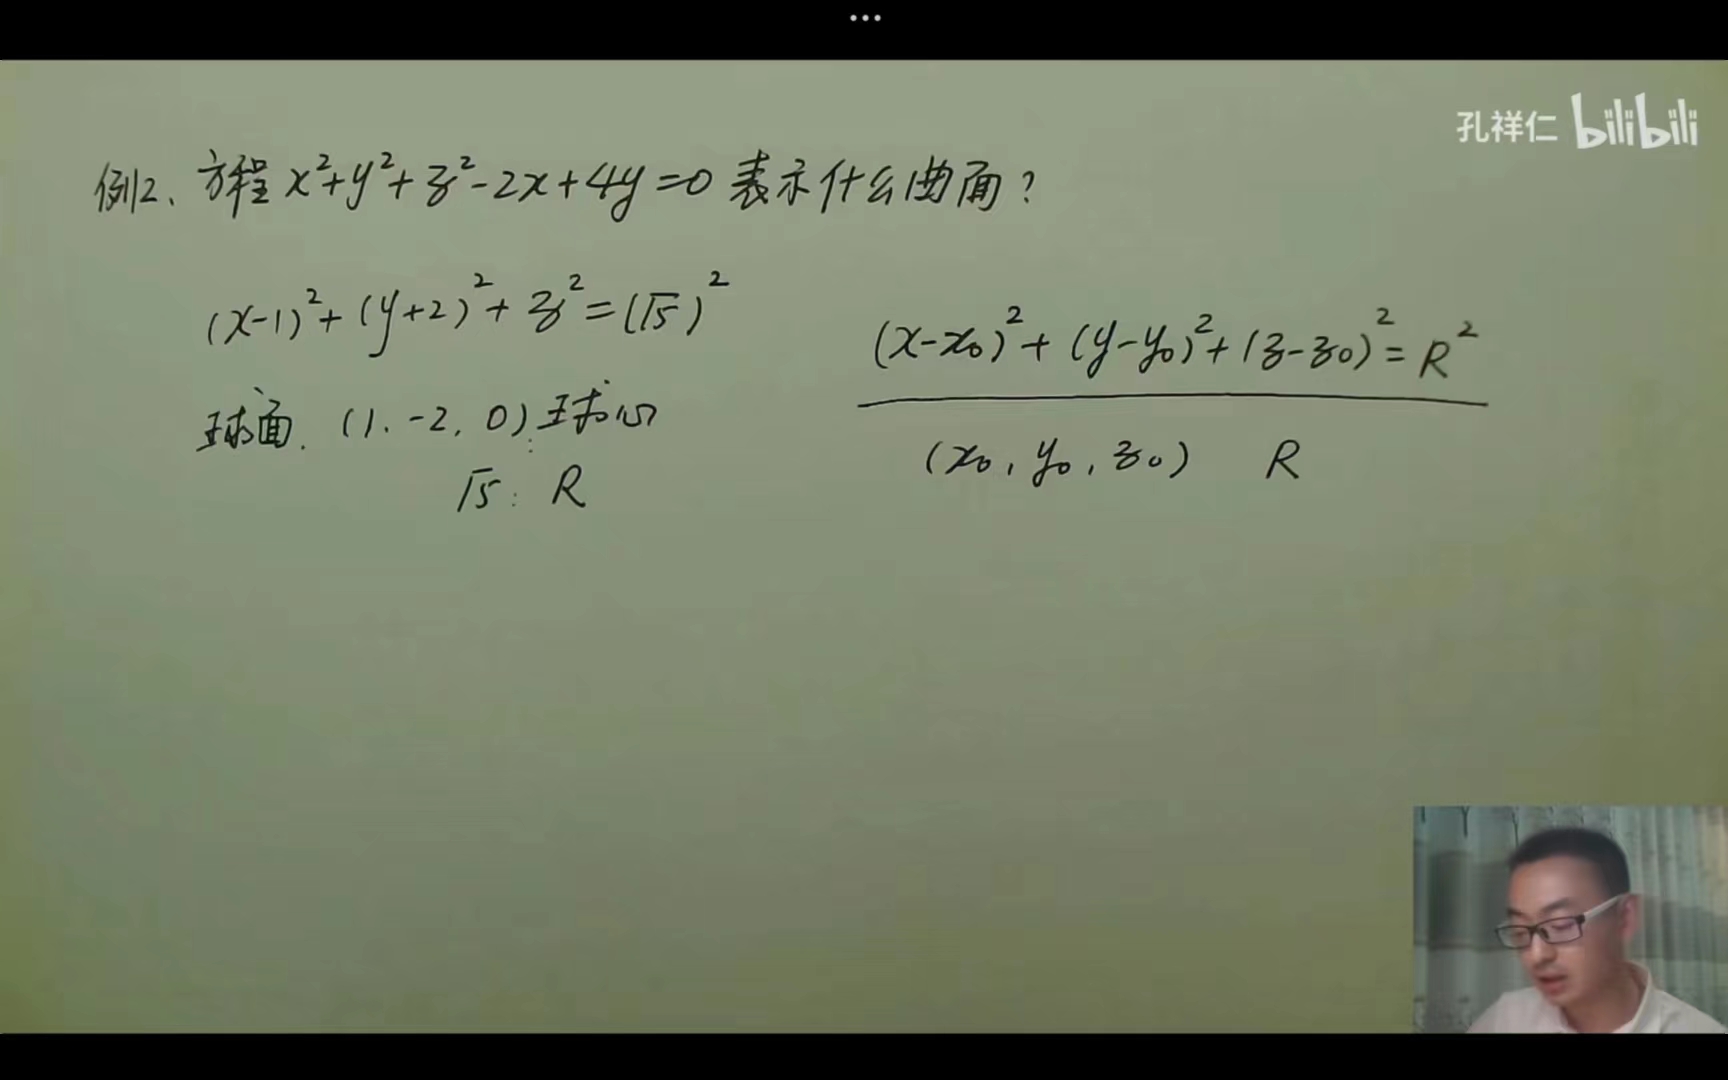 •••
孔祥仁 bilibili
例2、方程 x²+y²+z²-2x+4y=0 表示什么曲面?
(x-1)²+(y+2)²+z²=(√5)²
球面. (1. -2, 0): 球心
√5: R
(x-x₀)²+(y-y₀)²+(z-z₀)²=R²
(x₀, y₀, z₀) R